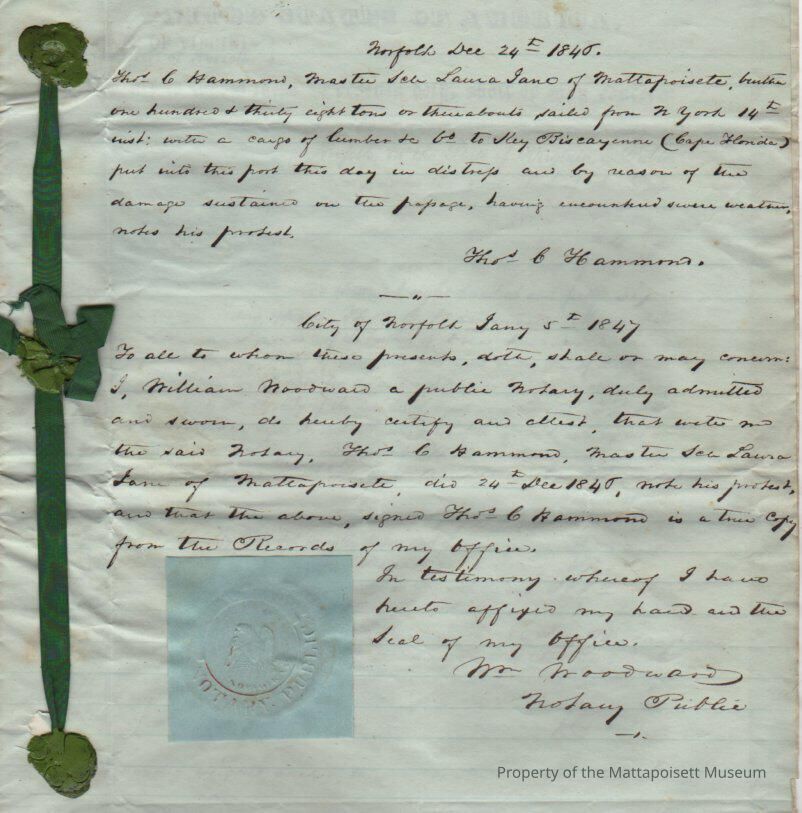 Norfolk Dec 24th 1846.
Thos C Hammond, Master Sch Laura Jane of Mattapoisete, burthen
one hundred & thirty eight tons or thereabouts sailed from N York 14th
inst: with a cargo of lumber &c to Key Biscayenne (Cape Florida)
put into this port this day in distress and by reason of the
damage sustained on the passage, having encountered severe weather,
notes his protest.
Thos C Hammond.
City of Norfolk Jany 5th 1847
To all to whom these presents, doth, shall or may concern:
I, William Woodward a public Notary, duly admitted
and sworn, do hereby certify and attest, that with me
the said Notary, Thos C Hammond, Master Sch Laura
Jane of Mattapoisete, did 24th Dec 1846, note his protest,
and that the above, signed Thos C Hammond is a true Copy
from the Records of my Office.
In testimony whereof I have
hereto affixed my hand and the
Seal of my Office.
Wm Woodward
Notary Public
NOTARY PUBLIC
NORFOLK
Property of the Mattapoisett Museum